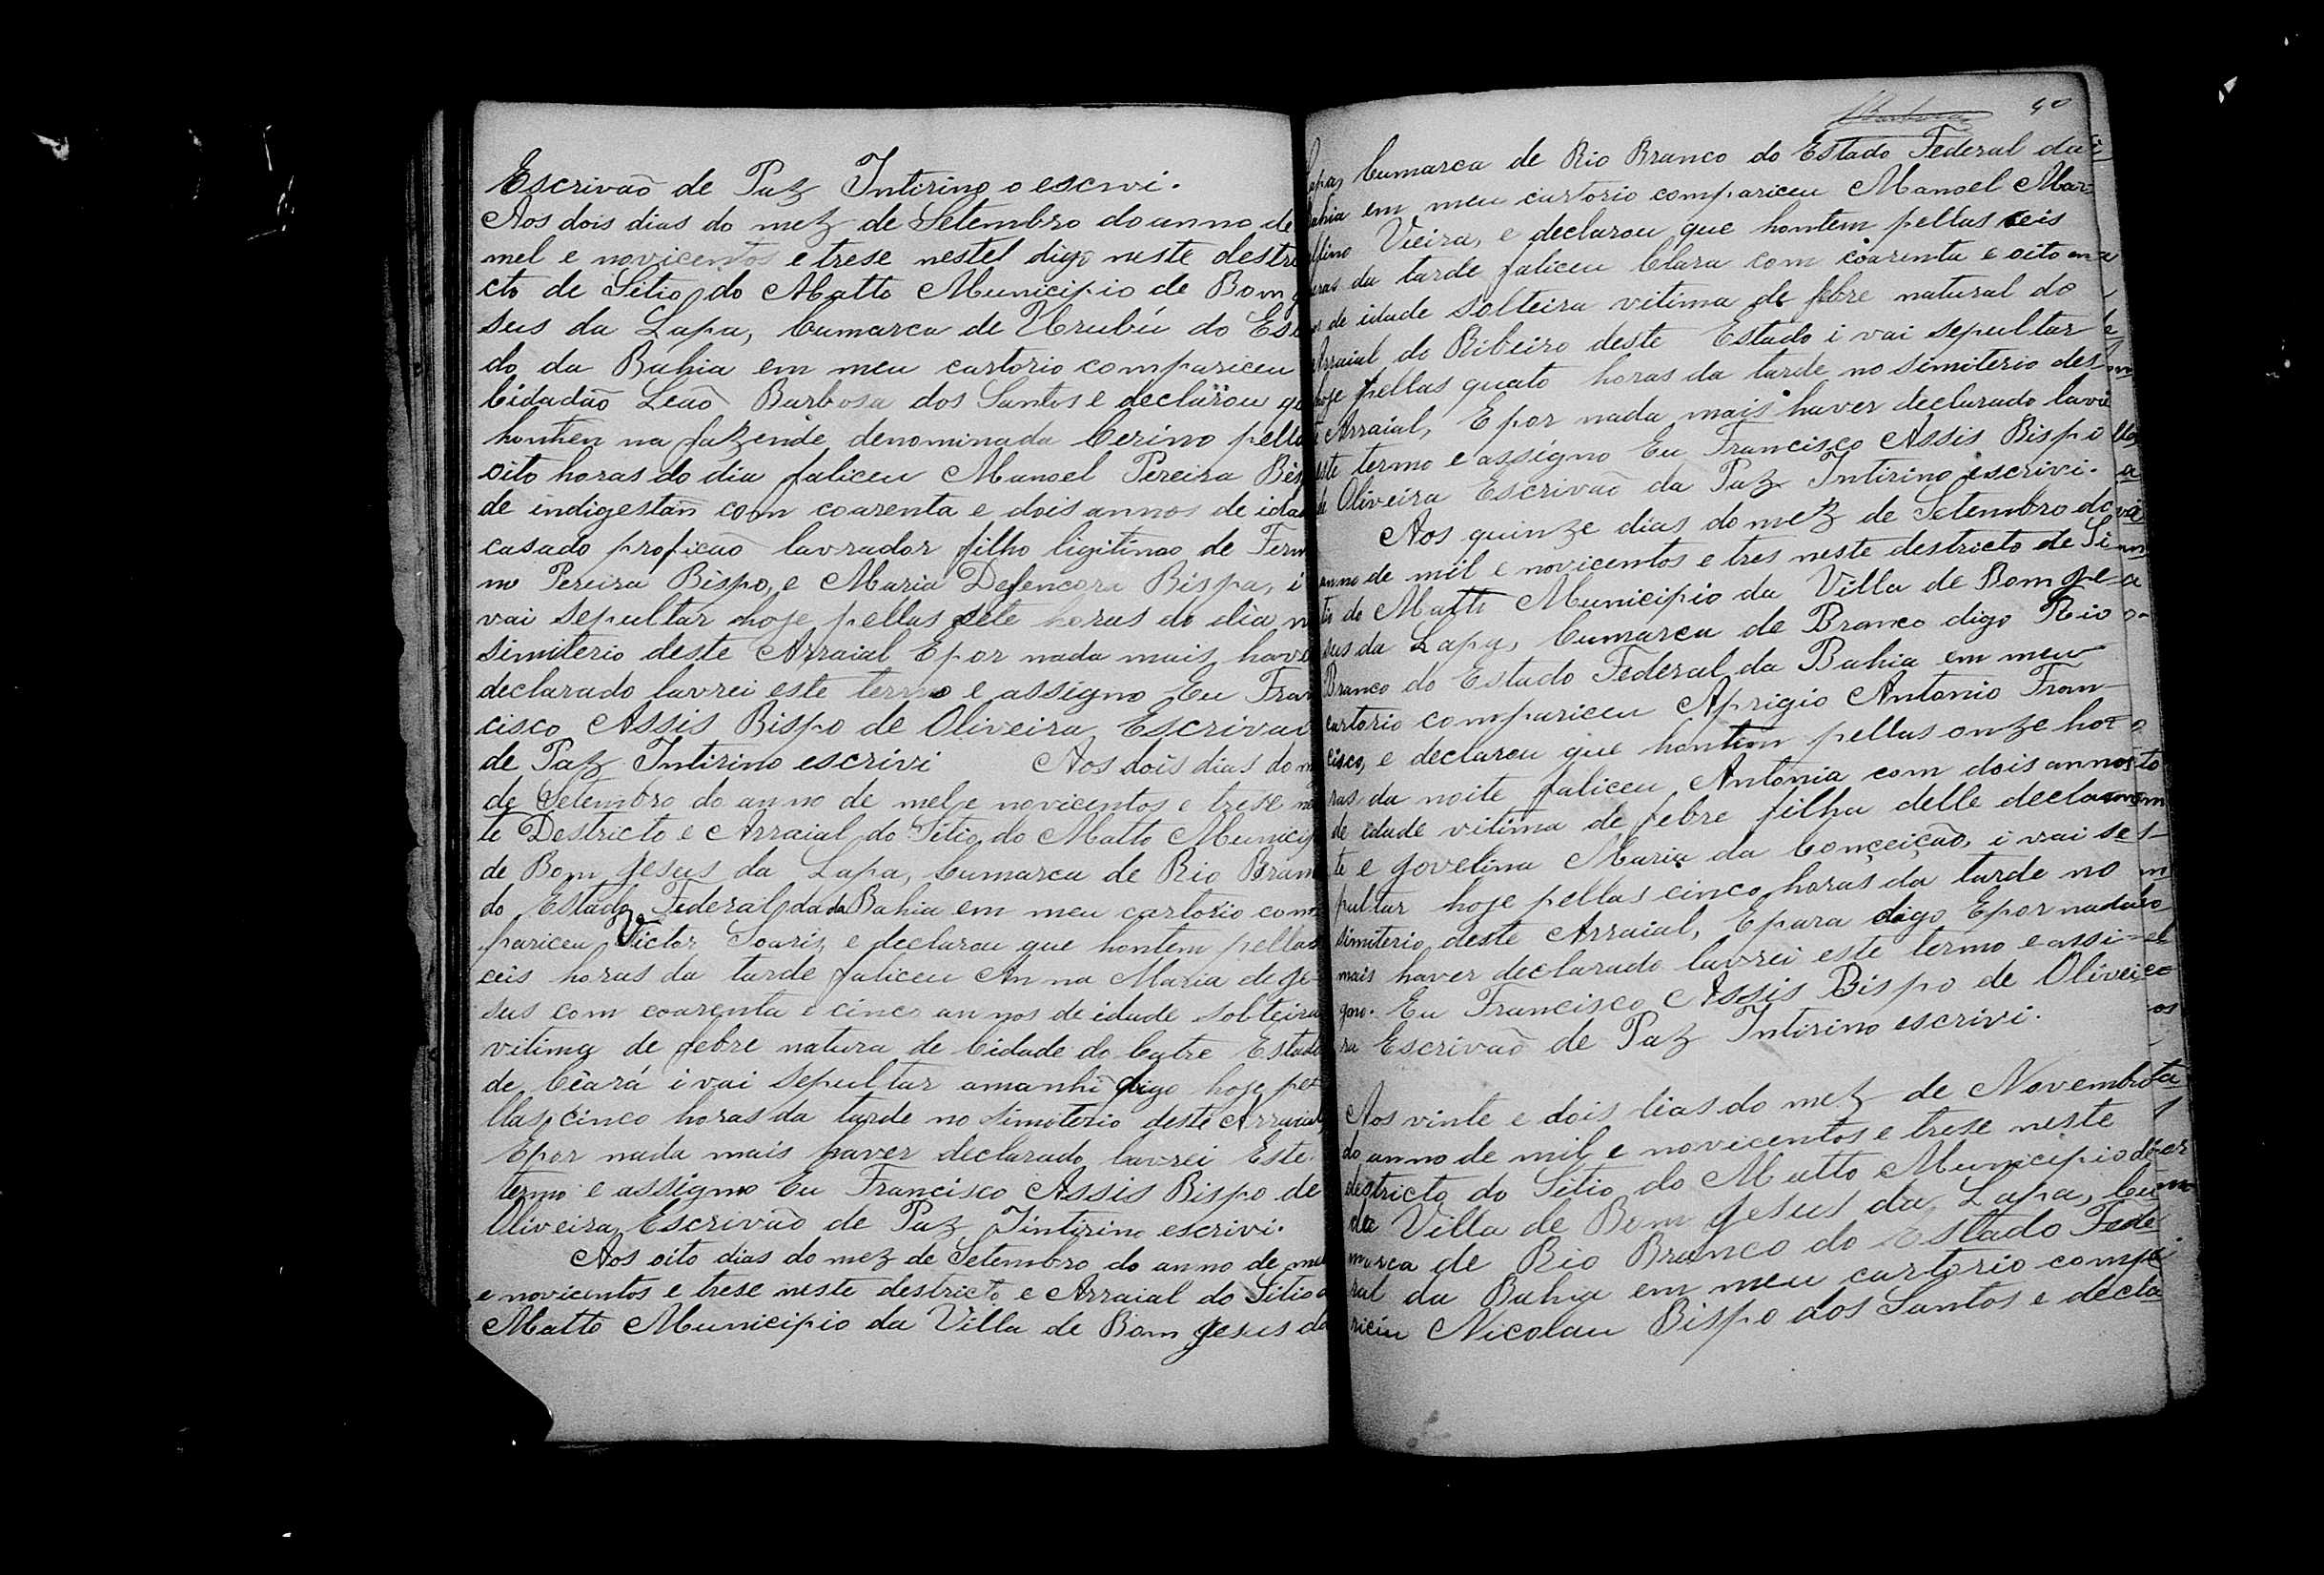 Escrivaõ de Paz Intirino o escrvi.
Aos dois dias do mez de Setembro do anno de
mel e novicentos e trese nestel digo neste destri
cto de Sitio do Matto Municipio de Bom
sus da Lapa, Cumarca de Urubú do Es
do da Bahia em meu cartorio compariceu
Cidadão Leaõ Barbosa dos Santos e declarou q
honten na fazende denominada Cerino pella
oito horas do dia faliceu Manoel Pereira Bis
de indigestan com coarenta e dois annos de ida
casado proficaõ lavrador filho ligitimo de Ferm
no Pereira Bispo, e Maria Defencora Bispa, i
vai sepultar hoje pellas sete horas do dia n
simiterio deste Arraial E por nada mais have
declarado lavrei este termo e assigno Eu Fran
cisco Assis Bispo de Oliveira Escrivaõ
de Paz Intirino escrivi Aos dois dias do m
de Setembro do anno de mel e novicentos e trese n
te Destricto e Arraial do Sitio do Matto Municip
de Bom Jesus da Lapa, Cumarca de Rio Bran
do Estado Federal da da Bahia em meu cartorio com
pariceu Victor Soaris e declarou que hontem pellas
ceis horas da tarde faliceu Anna Maria de Je
sus com coarenta e cinco annos de idade solteira
vitima de febre natura de Cidade do Catre Estado
de Ceará i vai sepultar amanhi digo hoje pe
llas cinco horas da tarde no simiterio deste Arraial,
E por nada mais haver declarado lavrei Este
termo e assigno Eu Francisco Assis Bispo de
Oliveira, Escrivaõ de Paz Jintirino escrivi.
Aos oito dias do mez de Setembro do anno de mel
e novicentos e trese neste destricto e Arraial do Sitio
Matto Municipio da Villa de Bom Jesus da
40
Lapa, Cumarca de Rio Branco do Estado Federal da
Bahia em meu cartorio compariceu Manoel Mar
fino Vieira, e declarou que hontem pellas ceis
oras da tarde faliceu Clara com coarenta e oito an
de idade solteira vitima de febre natural do
Arraial do Ribeiro deste Estado i vai sepultar
hoje pellas quato horas da tarde no simiterio des
te Arraial, E por nada mais haver declarado lavrei
este termo e assigno Eu Francisco Assis Bispo
de Oliveira Escrivaõ da Paz Intirino escrivi.
Aos quinze dias do mez de Setembro do
anno de mil e novicentos e tres neste destricto de Si
tio do Matto Municipio da Villa de Bom Je
sus da Lapa, Cumarca de Branco digo Rio
Branco do Estado Federal da Bahia em meu
cartorio compariceu Aprigio Antonio Fran
cisco, e declarou que hontem pellas onze ho
ras da noite faliceu Antonia com dois annos
de idade vitima de febre filha delle declaran
te e Jovelina Maria da Conçeição, i vai se
pultar hoje pellas cinco horas da tarde no
simiterio deste Arraial, E para digo E por nada
mais haver declarado lavrei este termo e assi
gno. Eu Francisco Assis Bispo de Olivei
ra Escrivaõ de Paz Intirino escrivi.
Aos vinte e dois dias do mez de Novembro
do anno de mil e novicentos e trese neste
destricto do Sitio do Matto Municipio
da Villa de Bom Jesus da Lapa, Cu
marca de Rio Branco do Estado Fede
ral da Bahia em meu cartorio compa
riciu Nicolau Bispo dos Santos e decla